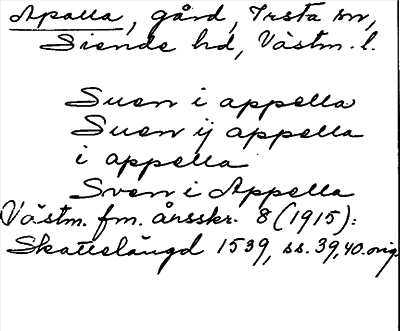 Apalla, gård, Irsta sn,
Siende hd, Västm. l.
Suen i appella
Suen ij appella
i appella
Sven i Appella
Västm. fm. årsskr. 8 (1915):
Skattelängd 1539, ss. 39, 40. orig.